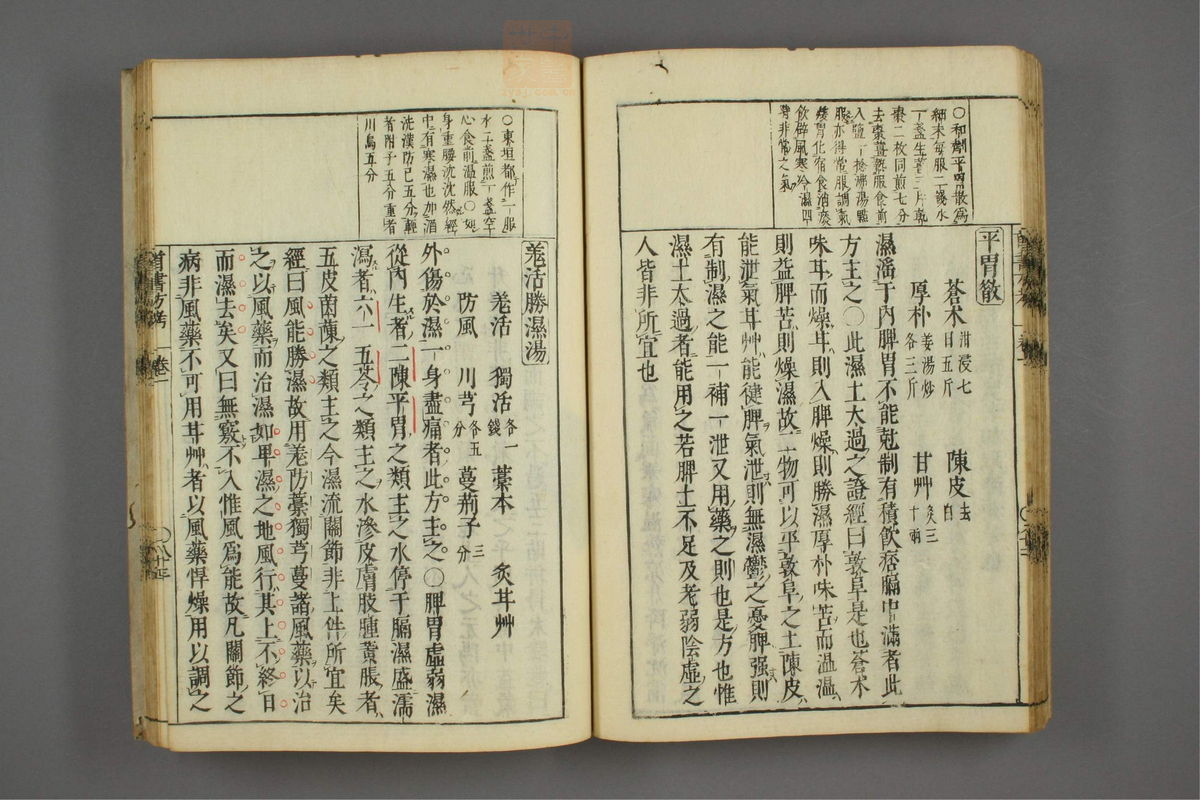 ○和劑平胃散爲
細末每服二錢水
一盞生薑二片乾
棗二枚同煎七分
去棗薑熱服食前
入鹽一捻沸湯點
服亦得常服調氣
煖胃化宿食消痰
飲辟風寒冷濕四
時非常之氣
平胃散
蒼木泔浸七日五斤 陳皮去白
厚朴姜湯炒各三斤 甘艸炙三十兩
濕滛于內脾胃不能尅制有積飲痞膈中滿者此
方主之○此濕土太過之證經曰敦阜是也蒼木
味甘而燥甘則入脾燥則勝濕厚朴味苦而溫溫
則益脾苦則燥濕故二物可以平敦阜之土陳皮
能泄氣甘艸能健脾氣泄則無濕鬱之憂脾强則
有制濕之能一補一泄又用藥之則也是方也惟
濕土太過者能用之若脾土不足及老弱陰虛之
人皆非所宜也
○東垣都作一服
水二盞煎一盞空
心食前溫服○如
身重腰沈沈然經
中有寒濕也加酒
洗漢防已五分輕
者附子五分重者
川烏五分
羌活勝濕湯
羌活 獨活各一錢 藁本 炙甘艸
防風 川芎各五分 蔓荊子三分
外傷於濕一身盡痛者此方主之○脾胃虛弱濕
從內生者二陳平胃之類主之水停于膈濕盛濡
瀉者六一五苓之類主之水滲皮膚肢腫黃脹者
五皮茵蔯之類主之今濕流關節非上件所宜矣
經曰風能勝濕故用羌防藁獨芎蔓諸風藥以治
之以風藥而治濕如卑濕之地風行其上不終日
而濕去矣又曰無竅不入惟風爲能故凡關節之
病非風藥不可用甘艸者以風藥悍燥用以調之